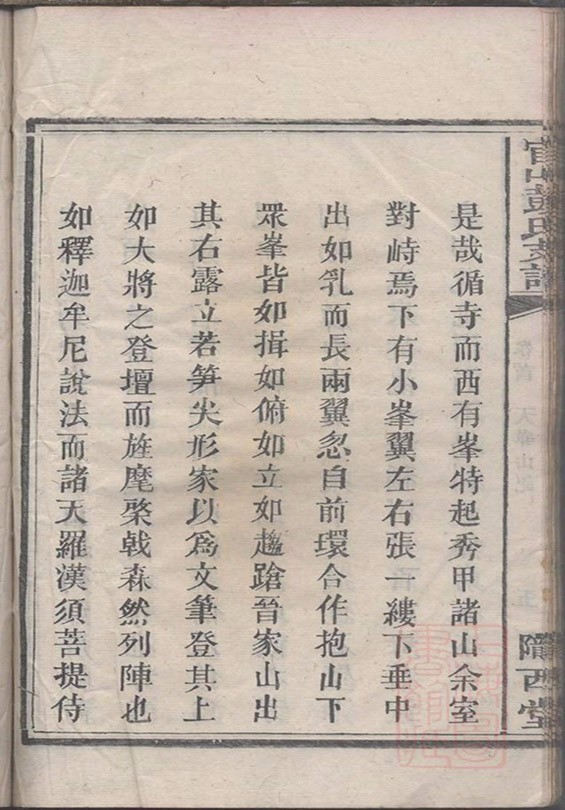 是哉循寺而西有峯特起秀甲諸山余室
對峙焉下有小峯翼左右張一縷下垂中
出如乳而長兩翼忽自前環合作抱山下
眾峯皆如揖如俯如立如趨蹌晉家山出
其右露立若笋尖形家以為文筆登其上
如大將之登壇而旌麾棨戟森然列陣也
如釋迦牟尼說法而諸天羅漢須菩提侍
隴西堂